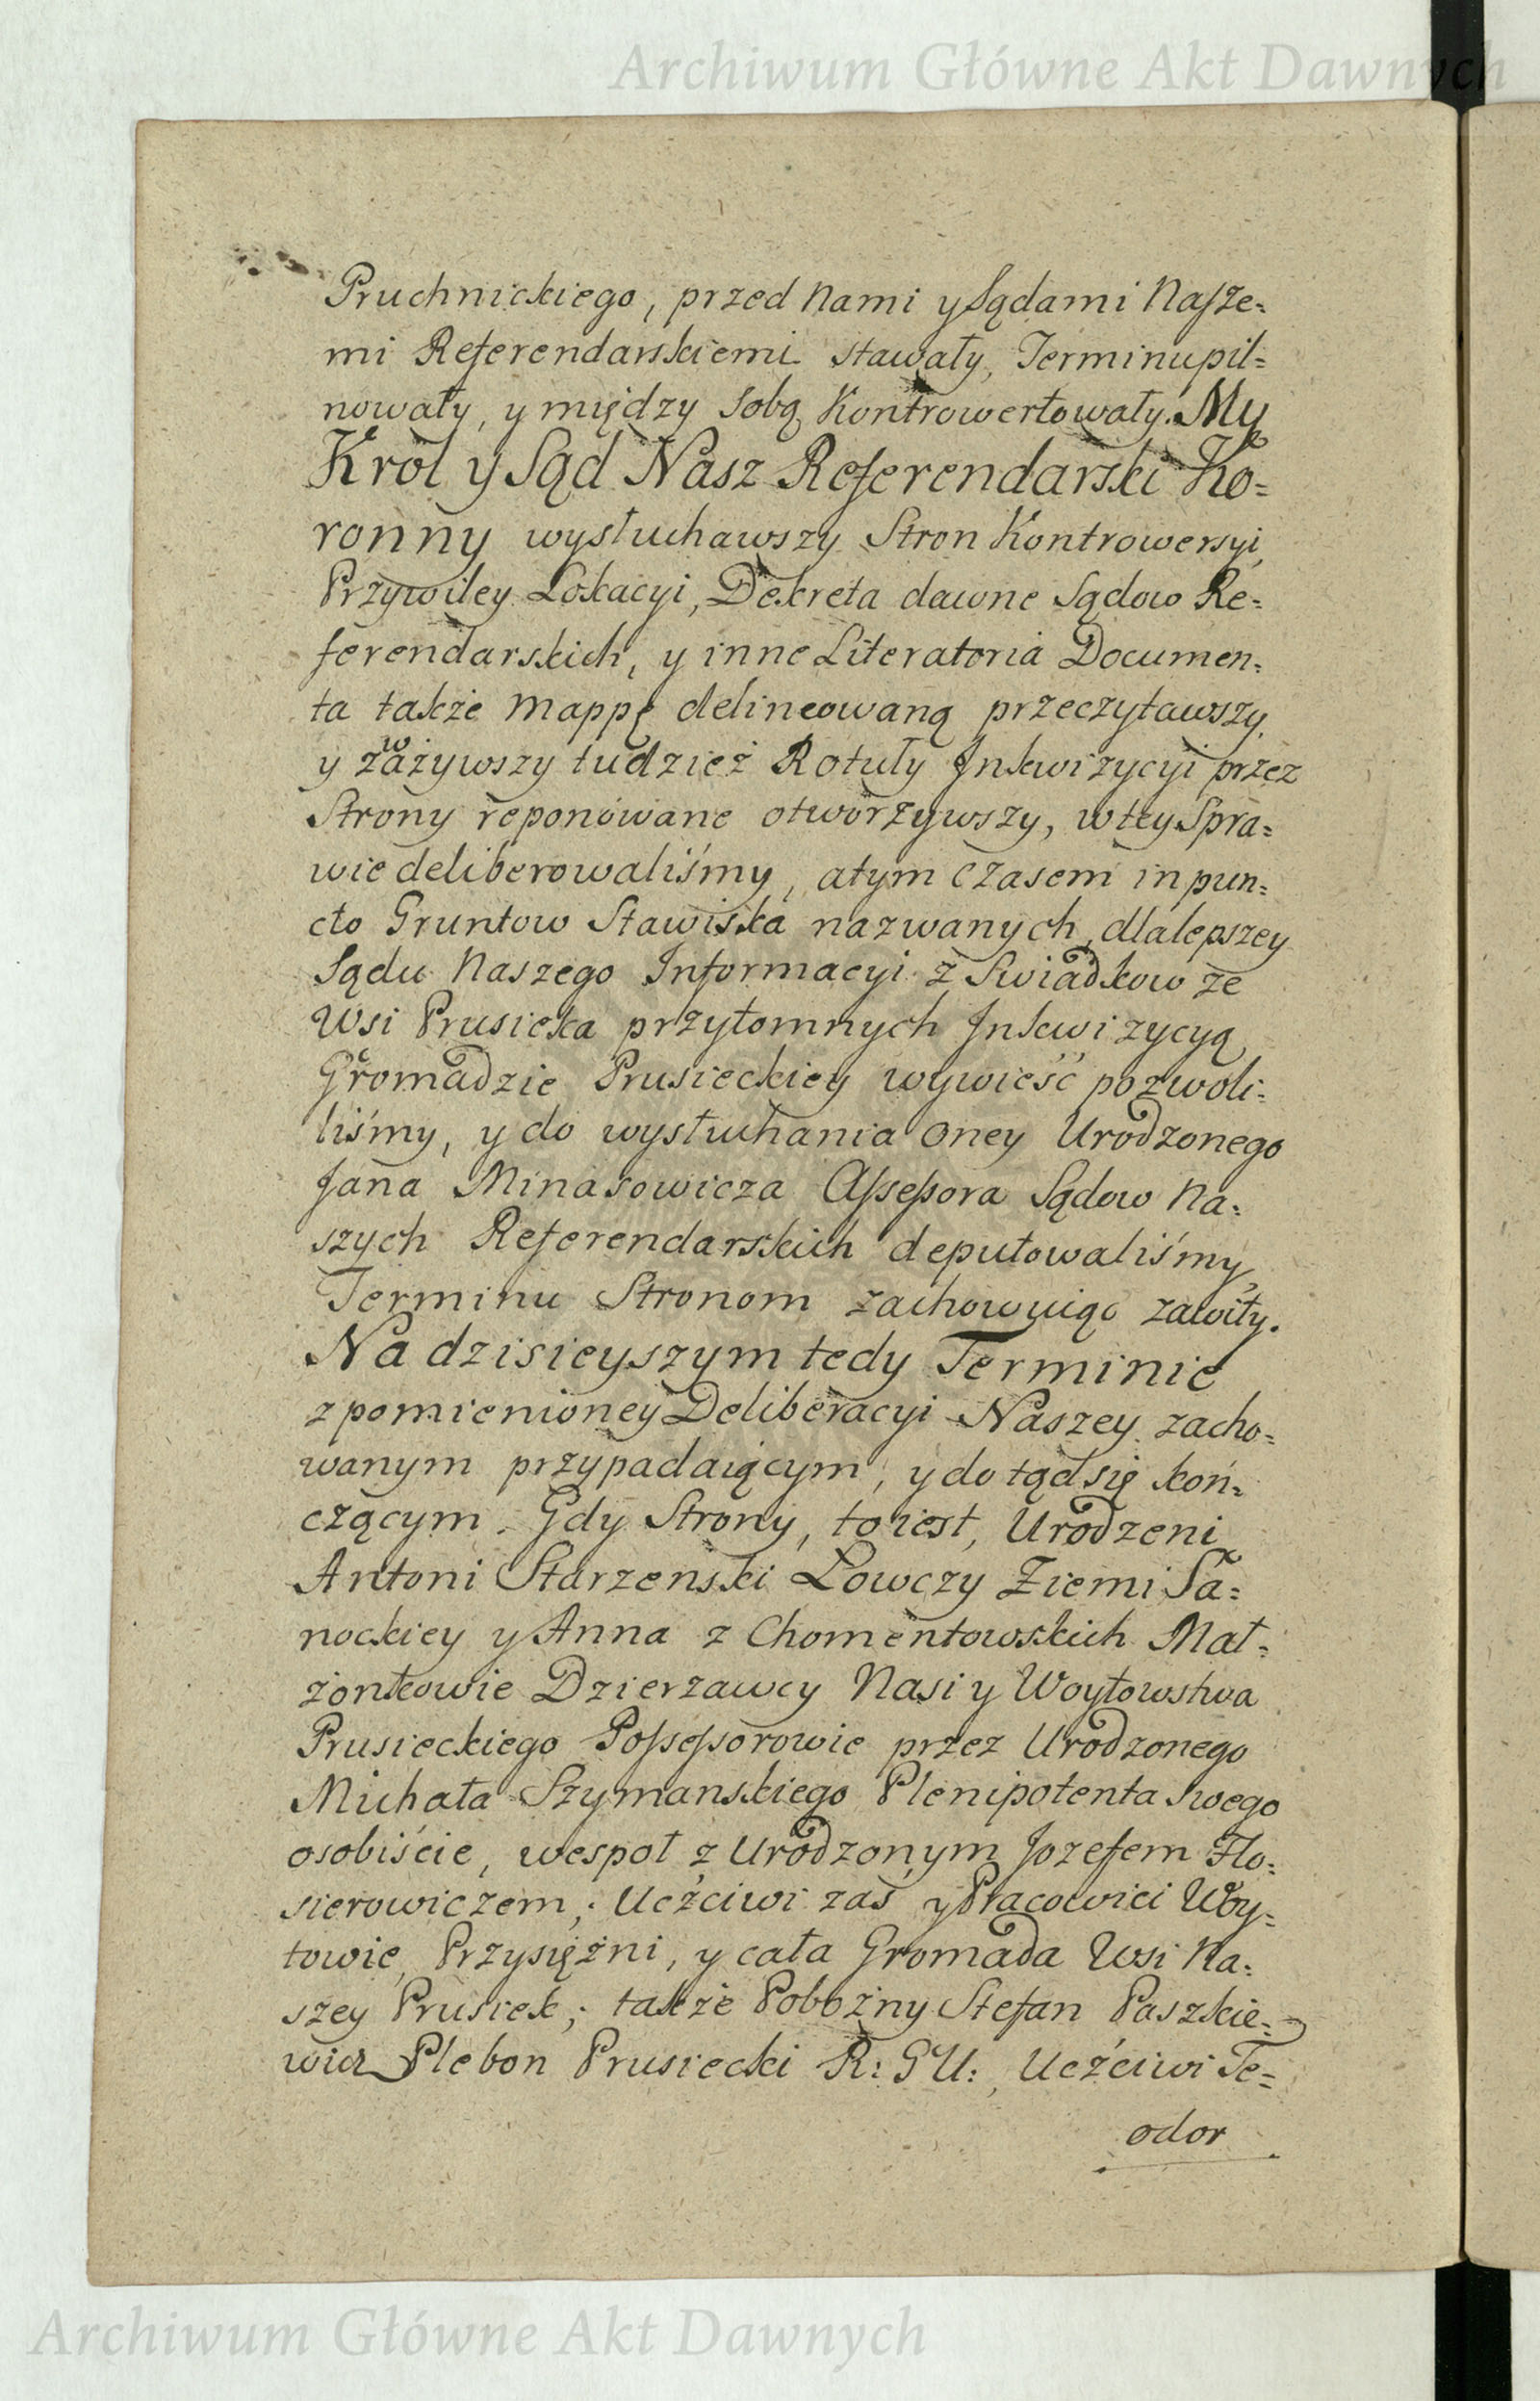 Archiwum Główne Akt Dawnych
Pruchnickiego, przed Nami y Sądami Nasze=
mi Referendarskiemi stawały, Terminu pil=
nowały, y między sobą Kontrowertowały. My
Krol y Sąd Nasz Referendarski Ko=
ronny wysłuchawszy Stron Kontrowersyi,
Przywiley Lokacyi, Dekreta dawne Sądow Re=
ferendarskich, y inne Literatoria Documen=
ta także Mappę delineowaną przeczytawszy,
y zważywszy tudzież Rotuły Inkwizycyi przez
Strony reponowane otworzywszy, w tey Spra=
wie deliberowaliśmy, a tym czasem in pun=
cto Gruntow Stawiska nazwanych, dla lepszey
Sądu Naszego Informacyi z Swiadkow ze
Wsi Prusieka przytomnych Inkwizycyą
Gromadzie Prusieckiey wywieść pozwoli=
liśmy, y do wysłuchania oney Urodzonego
Jana Minasowicza Assessora Sądow Na=
szych Referendarskich deputowaliśmy,
Terminu Stronom zachowuiąc zawity.
Na dzisieyszym tedy Terminie
z pomienioney Deliberacyi Naszey zacho=
wanym przypadaiącym, y do tąd się koń=
czącym. Gdy Strony, to iest, Urodzeni
Antoni Starzenski Łowczy Ziemi Sa=
nockiey y Anna z Chomentowskich Mał=
żonkowie Dzierzawcy Nasi y Woytowstwa
Prusieckiego Possessorowie przez Urodzonego
Michała Szymanskiego Plenipotenta swego
osobiście, wespoł z Urodzonym Jozefem Flo=
sierowiczem; Uczciwi zaś y Pracowici Woy=
towie, Przysiężni, y cała Gromada Wsi Na=
szey Prusiek; także Pobożny Stefan Paszkie=
wicz Plebon Prusiecki R: G U:, Uczciwi Te=
odor
Archiwum Główne Akt Dawnych